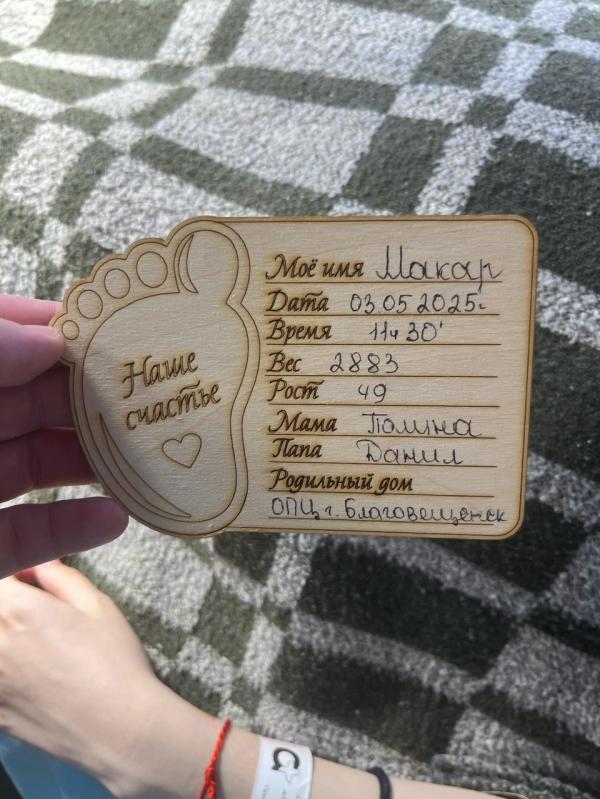 Наше
счастье
Моё имя Макар
Дата 03.05 2025г
Время 11ч 30'
Вес 2883
Рост 49
Мама Полина
Папа Данил
Родильный дом
ОПЦ г. Благовещенск